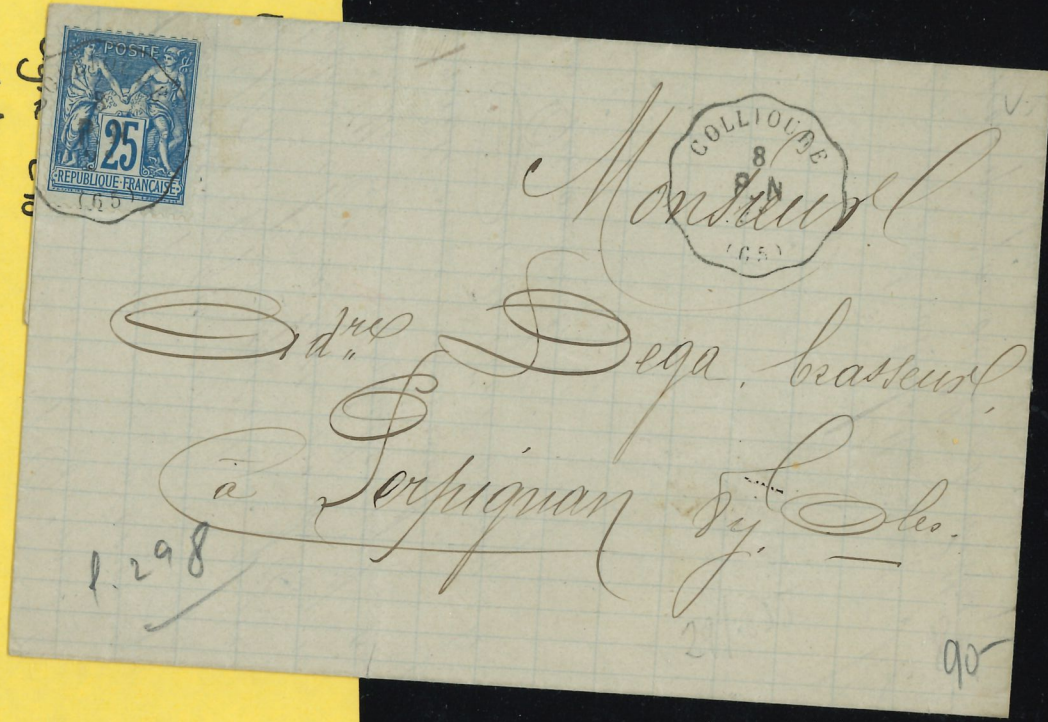 POSTE
25
REPUBLIQUE FRANÇAISE
(65)
COLLIOURE
8
(65)
Monsieur
Dega, brasseur,
à Perpignan Py. Oles.
P. 298
90